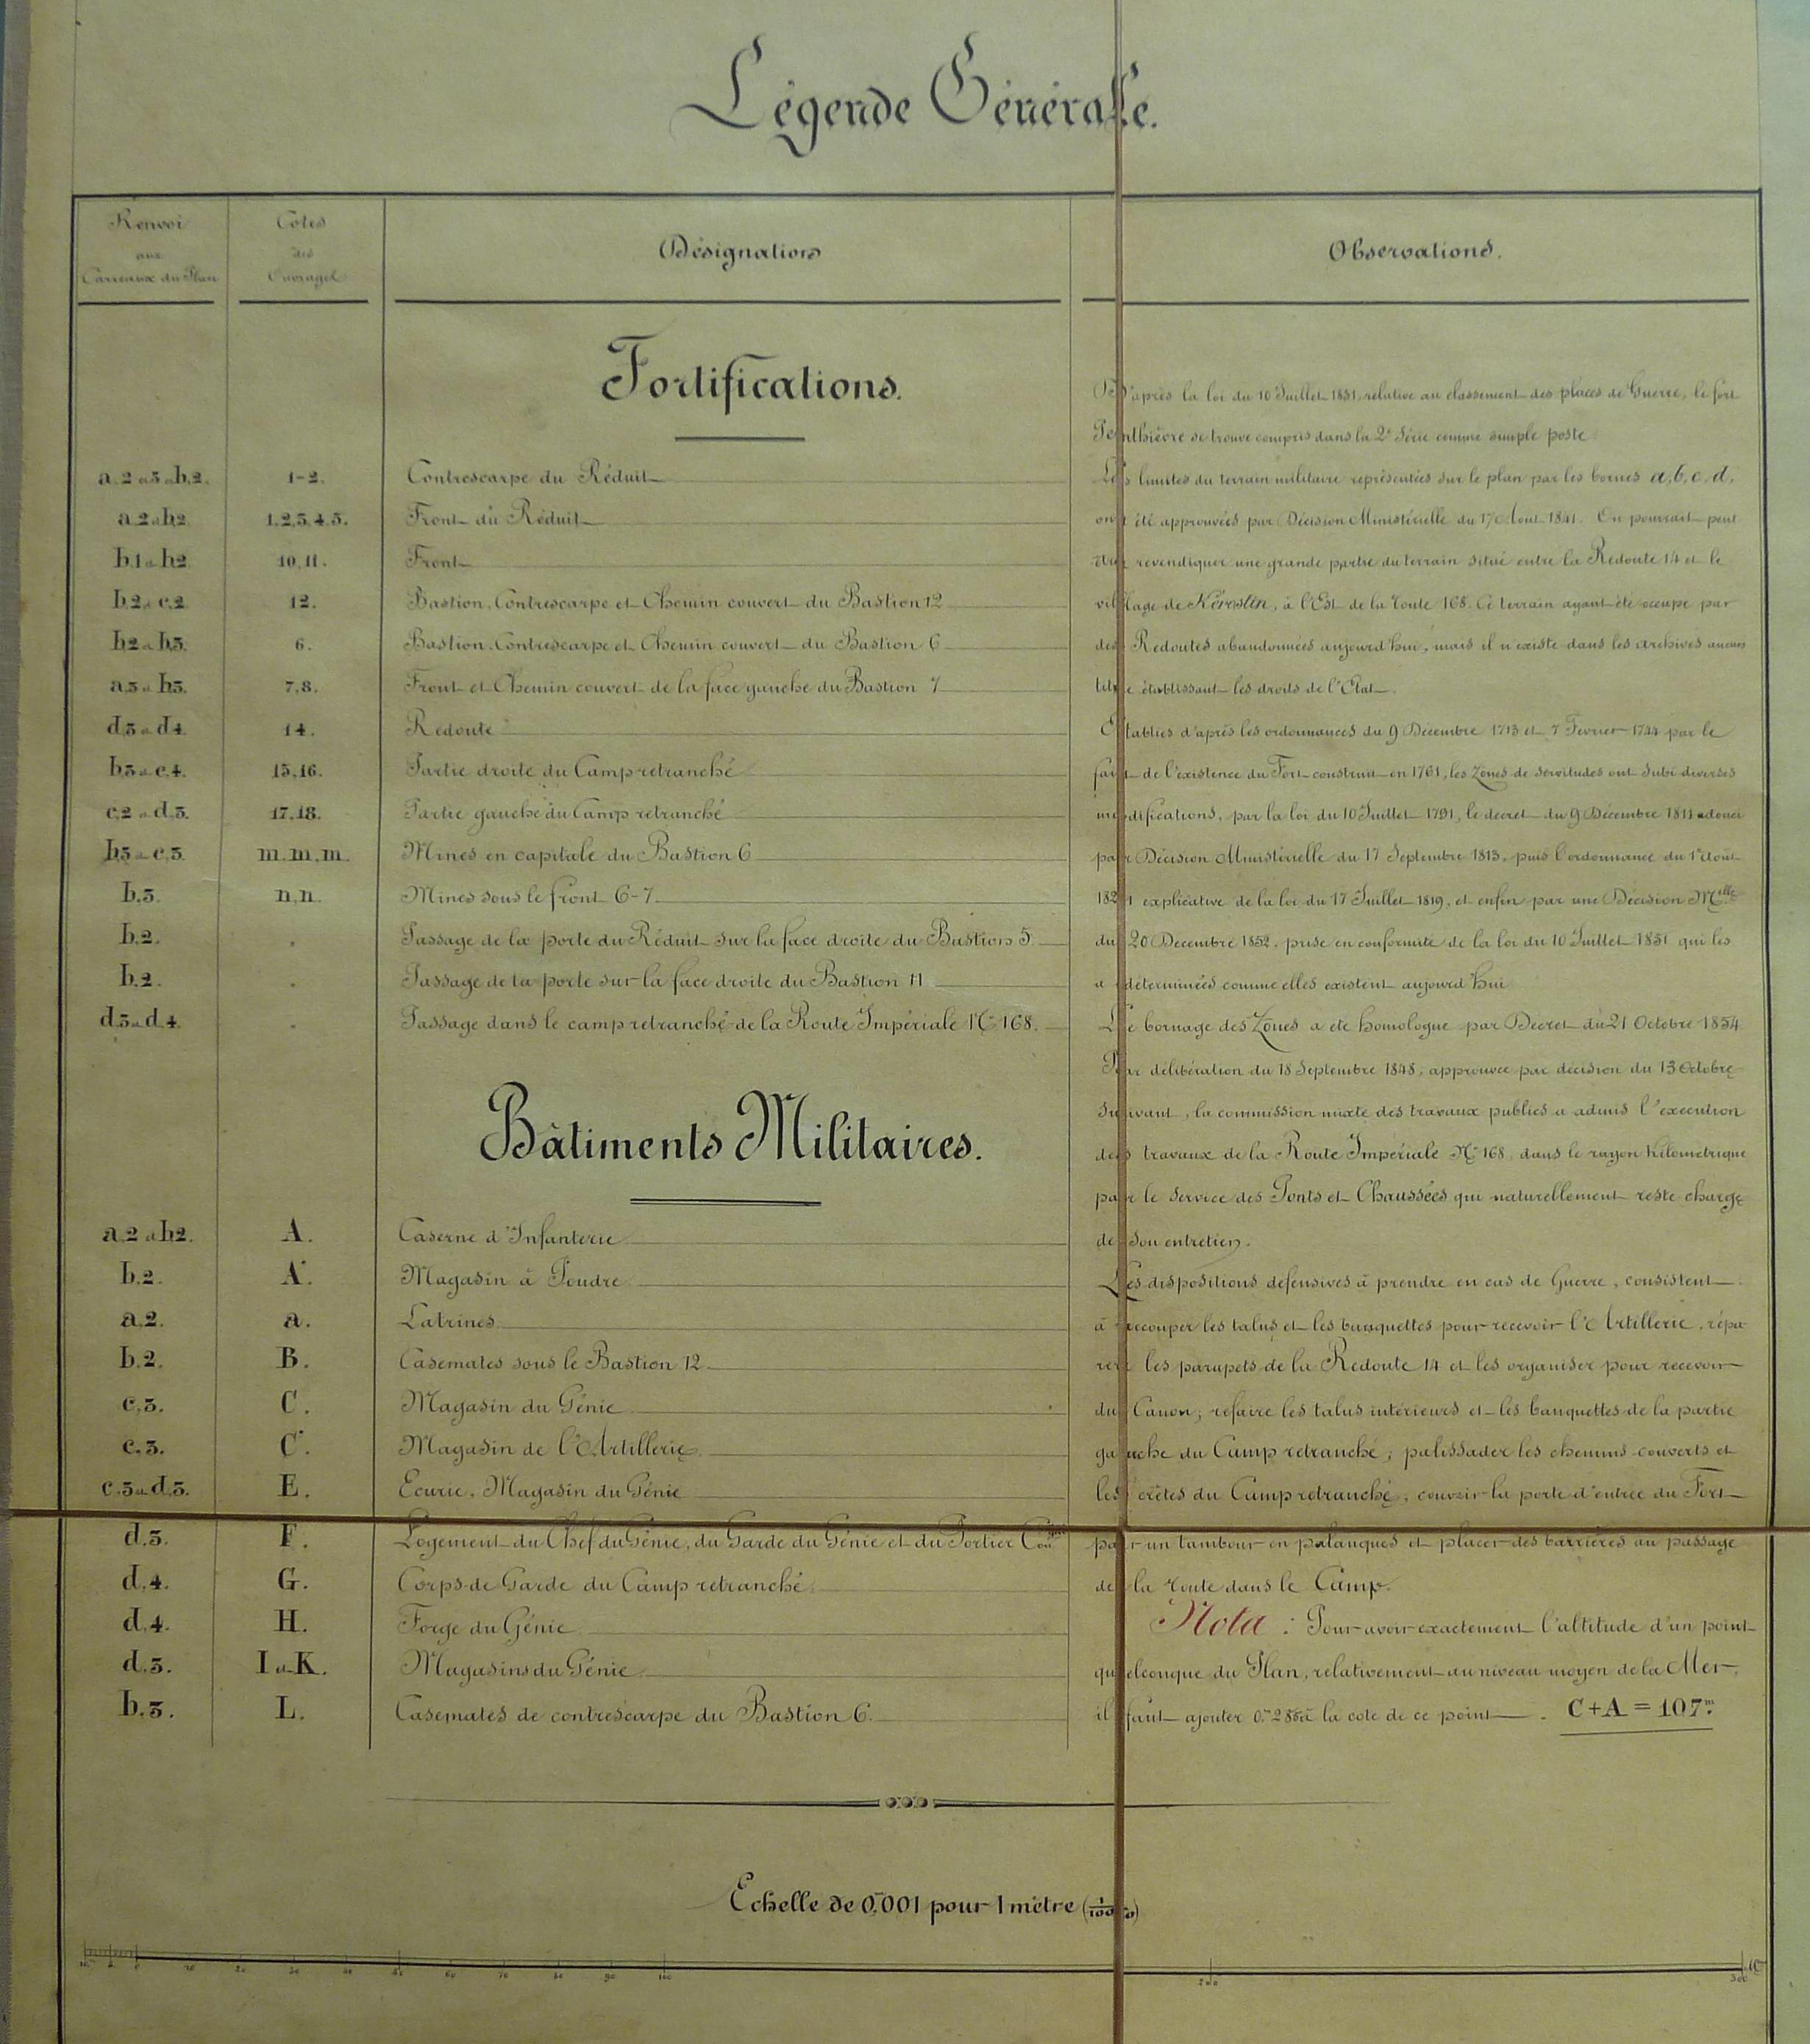 Légende Générale.
Renvoi
aux
Carreaux du Plan
Cotes
des
Ouvrages
Désignations
Observations.
Fortifications.
a.2 à 3 à b.2. 1-2. Contrescarpe du Réduit
a.2 à b.2. 1.2.3.4.5. Front du Réduit
b.1 à b.2 10.11. Front
b.2 à c.2 12. Bastion, Contrescarpe et Chemin couvert du Bastion 12
b.2 à b.3. 6. Bastion, Contrescarpe et Chemin couvert du Bastion 6
a.3 à b.3. 7.8. Front et Chemin couvert de la face gauche du Bastion 7
d.3 à d.4. 14. Redoute
b.3 à c.4. 15.16. Partie droite du Camp retranché
c.2 à d.3. 17.18. Partie gauche du Camp retranché
b.3 à c.3. m.m.m. Mines en capitale du Bastion 6
b.3. n.n. Mines sous le front 6-7
b.2. . Passage de la porte du Réduit sur la face droite du Bastion 5.
b.2. . Passage de la porte sur la face droite du Bastion 11
d.3 à d.4. . Passage dans le camp retranché de la Route Impériale N° 168.
Bâtiments Militaires.
a.2 à b.2. A. Caserne d'Infanterie
b.2. A'. Magasin à Poudre
a.2. a. Latrines
b.2. B. Casemates sous le Bastion 12
c.3. C. Magasin du Génie
c.3. C'. Magasin de l'Artillerie
c.3 à d.3. E. Ecurie, Magasin du Génie
d.3. F. Logement du Chef du Génie, du Garde du Génie et du Portier
d.4. G. Corps de Garde du Camp retranché
d.4. H. Forge du Génie
d.3. I et K. Magasins du Génie
b.3. L. Casemates de contrescarpe du Bastion 6.
D'après la loi du 10 Juillet 1851, relative au classement des places de Guerre, le fort
Penthièvre se trouve compris dans la 2e Série comme simple poste
Les limites du terrain militaire représentées sur le plan par les bornes a, b, c, d,
ont été approuvées par Décision Ministérielle du 17 Aout 1841. On pourrait peut
être revendiquer une grande partie du terrain situé entre la Redoute 14 et le
village de Kerostin, à l'Est de la route 168. Ce terrain ayant été occupé par
des Redoutes abandonnées aujourd'hui, mais il n'existe dans les archives aucun
titre établissant les droits de l'Etat.
Etablies d'après les ordonnances du 9 Décembre 1713 et 7 Fevrier 1744 par le
fait de l'existence du Fort construit en 1761, les Zones de servitudes ont subi diverses
modifications, par la loi du 10 Juillet 1791, le decret du 9 Décembre 1811 adouci
par Décision Ministérielle du 17 Septembre 1813, puis l'ordonnance du 1er Aout
1821 explicative de la loi du 17 Juillet 1819, et enfin par une Décision Mlle
du 20 Decembre 1852, prise en conformité de la loi du 10 Juillet 1851 qui les
a déterminées comme elles existent aujourd'hui
Le bornage des Zones a été homologué par Decret du 21 Octobre 1854
Par délibération du 18 Septembre 1848, approuvée par décision du 13 Octobre
suivant, la commission mixte des travaux publics a admis l'execution
des travaux de la Route Impériale N° 168, dans le rayon kilométrique
par le Service des Ponts et Chaussées qui naturellement reste chargé
de son entretien.
Les dispositions défensives à prendre en cas de Guerre, consistent
à recouper les talus et les banquettes pour recevoir l'Artillerie, répa
rer les parapets de la Redoute 14 et les organiser pour recevoir
du Canon; refaire les talus intérieurs et les banquettes de la partie
gauche du Camp retranché; palissader les chemins couverts et
les crêtes du Camp retranché, couvrir la porte d'entrée du Fort
par un tambour en palanques et placer des barrières au passage
de la route dans le Camp.
Nota : Pour avoir exactement l'altitude d'un point
quelconque du Plan, relativement au niveau moyen de la Mer,
il faut ajouter à la cote de ce point. C+A = 107.m
Echelle de 0m,001 pour 1 mètre (1/1000)
10 0 10 20 30 40 50 60 70 80 90 100 200 300